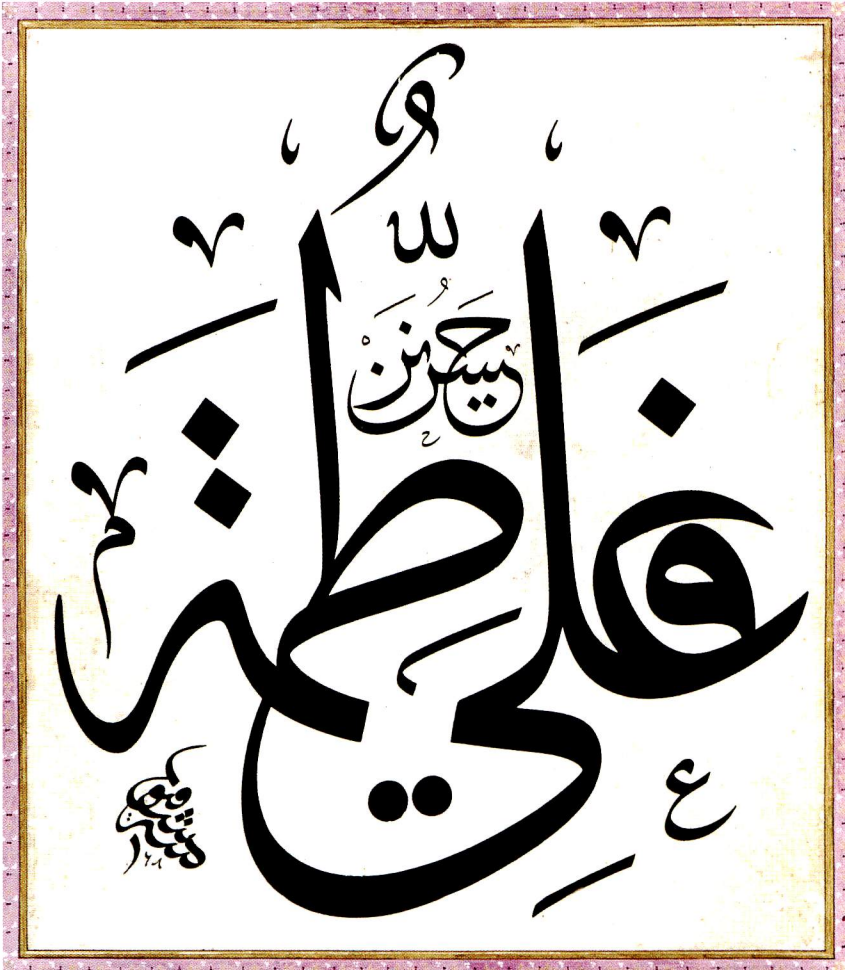 لله
حسن حسين
علي
فاطمة